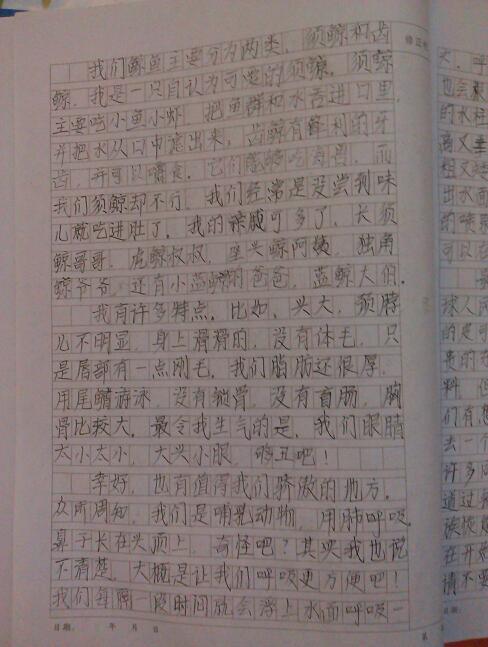 修正
我们鲸鱼主要分为两类，须鲸和齿
鲸。我是一只自认为可爱的须鲸。须鲸
主要吃小鱼小虾，把鱼群和水吞进口里，
并把水从口中滤出来，齿鲸有锋利的牙
齿，并可以嚼食。它们吃海兽。而
我们须鲸却不行，我们经常是没尝到味
儿就吃进肚了。我的亲戚可多了，长须
鲸哥哥，虎鲸叔叔，座头鲸阿姨，独角
鲸爷爷，还有小蓝鲸的爸爸，蓝鲸大伯。
我有许多特点。比如，头大，颈脖
儿不明显，身上滑滑的，没有体毛，只
是唇部有一点刚毛。我们脂肪还很厚，
用尾鳍游泳，没有锁骨，没有盲肠，胸
骨比较大。最令我生气的是，我们眼睛
太小太小，大头小眼，够丑吧！
幸好，也有值得我们骄傲的地方。
众所周知，我们是哺乳动物，用肺呼吸。
鼻子长在头顶上，奇怪吧？其实我也说
不清楚，大概是让我们呼吸更方便吧！
我们每隔一段时间就会浮上水面呼吸一
日期： 年 月 日
第
大，呼
也会
的水柱
高又
粗又
出水面
的喷
可以
球人
的是可
贵的
料，但
们有
去一个
许多
通过
族
在开
请不要
日期：